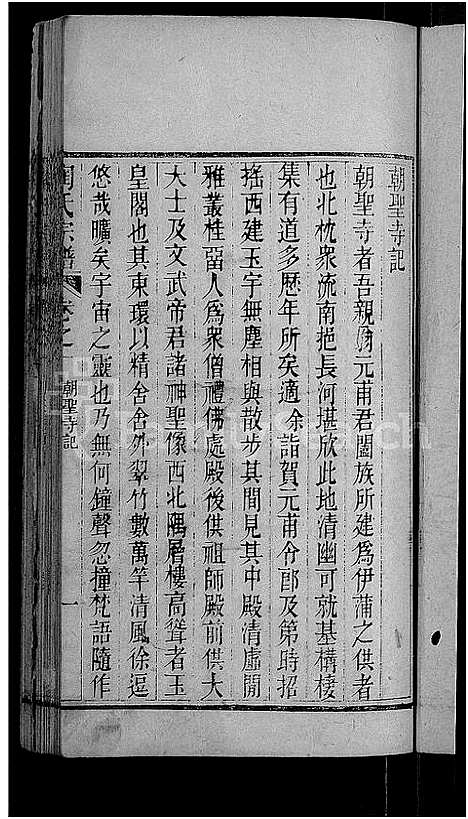 朝聖寺記
朝聖寺者吾親翁元甫君闔族所建為伊蒲之供者
也北枕衆流南挹長河堪欣此地清幽可就基構棲
集有道多歷年所矣適余詣賀元甫令郎及第時招
搖西建玉宇無塵相與散步其間見其中殿清虛開
雅叢桂留人為衆僧禮佛處殿後供祖師殿前供大
大士及文武帝君諸神聖像西北隅層樓高聳者玉
皇閣也其東環以精舍舍外翠竹數萬竿清風徐逗
悠哉曠矣宇宙之靈也乃無何鐘聲忽撞梵語隨作
氏宗譜 卷之一 朝聖寺記 一